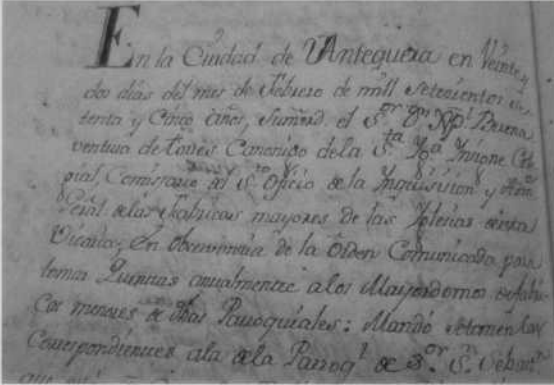 En la Ciudad de Antequera en Veinte y
dos dias del mes de Febrero de mill setecientos se
tenta y Cinco años, Sumrd. el Sor. Dn. Xpl. Buena
ventura de Torres Canonigo de la Sta. Yga. Insigne Cole
gial, Comissario del Sto. Oficio de la Inquisision y Adm
Genal de las Fabricas mayores de las Yglesias de esta
Vicaria; En observancia de la Orden Comunicada para
tomar Quentas anualmente a los Mayordomos de Fabri
cas menores de dhas Parroquiales: Mandó se tomen las
Correspondientes a la de la Parroql. de Sor. Sn. Seban